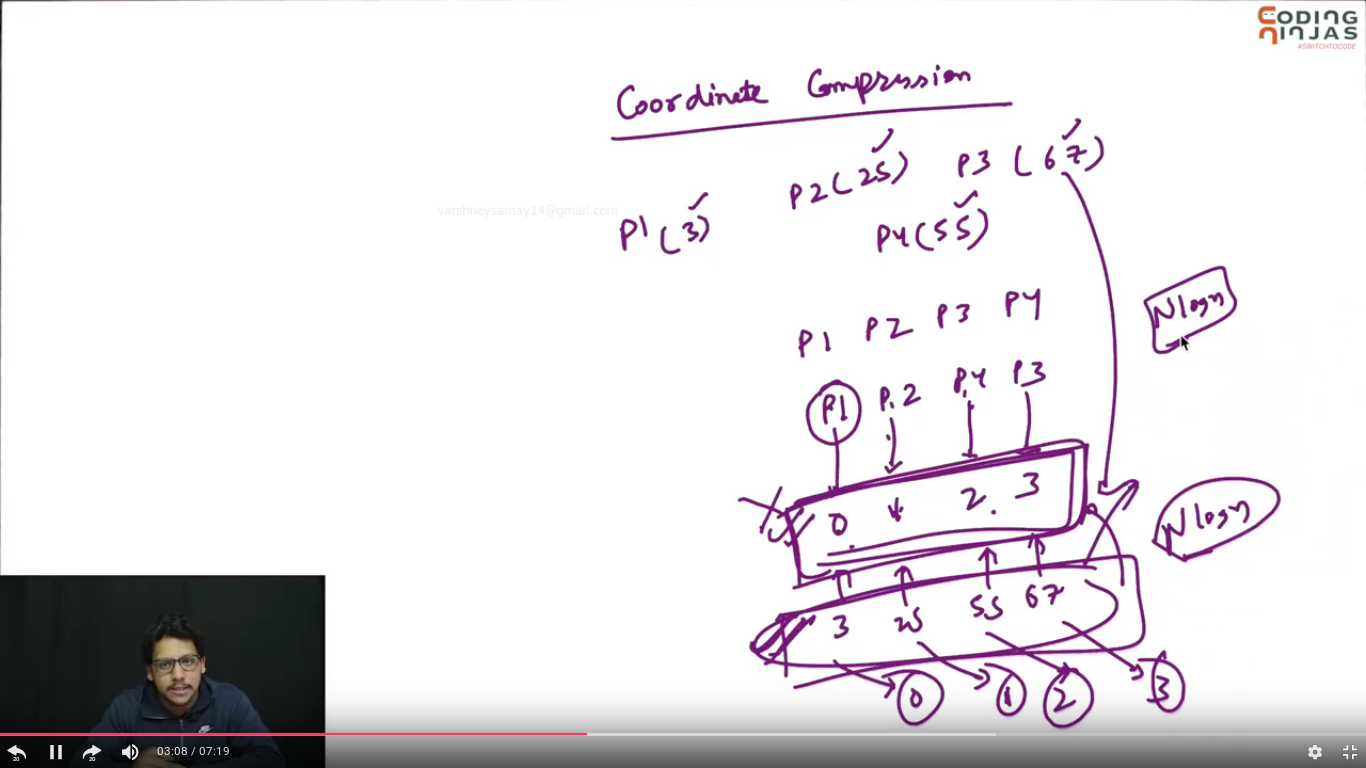 CODING
NINJAS
#SWITCHTOCODE
Coordinate Compression
P1 (3) P2 (25) P3 (67)
P4 (55)
varshneysamay14@gmail.com
P1 P2 P3 P4
Nlogn
P1 P.2 P.4 P3
0 2 3
Nlogn
3 25 55 67
0 1 2 3
20 20 03:08 / 07:19